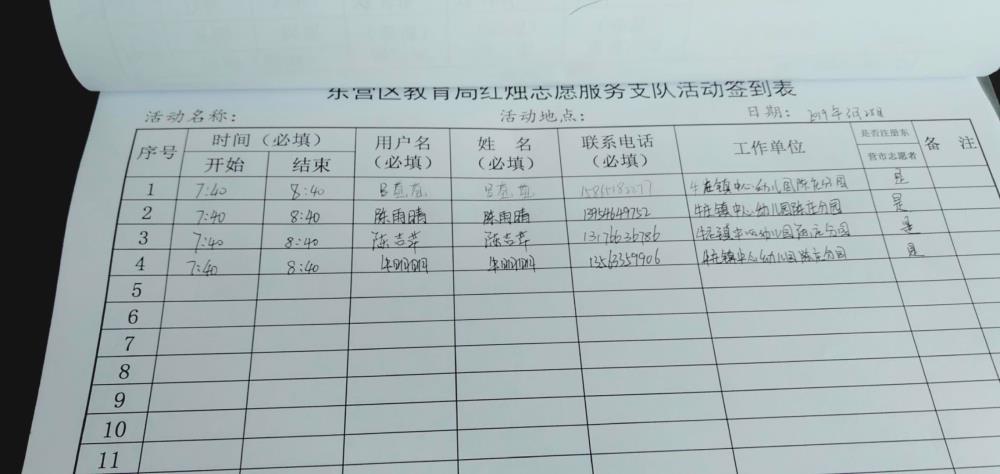 东营区教育局红烛志愿服务支队活动签到表
活动名称： 活动地点： 日期：2019年 月28日
序号 时间（必填） 用户名（必填） 姓 名（必填） 联系电话（必填） 工作单位 是否注册东营市志愿者 备 注
开始 结束
1 7:40 8:40 牛庄镇中心幼儿园陈庄分园 是
2 7:40 8:40 陈雨晴 陈雨晴 13954649752 牛庄镇中心幼儿园陈庄分园 是
3 7:40 8:40 陈吉苹 陈吉苹 13176636786 牛庄镇中心幼儿园陈庄分园 是
4 7:40 8:40 朱明明 朱明明 13563359906 牛庄镇中心幼儿园陈庄分园 是
5
6
7
8
9
10
11